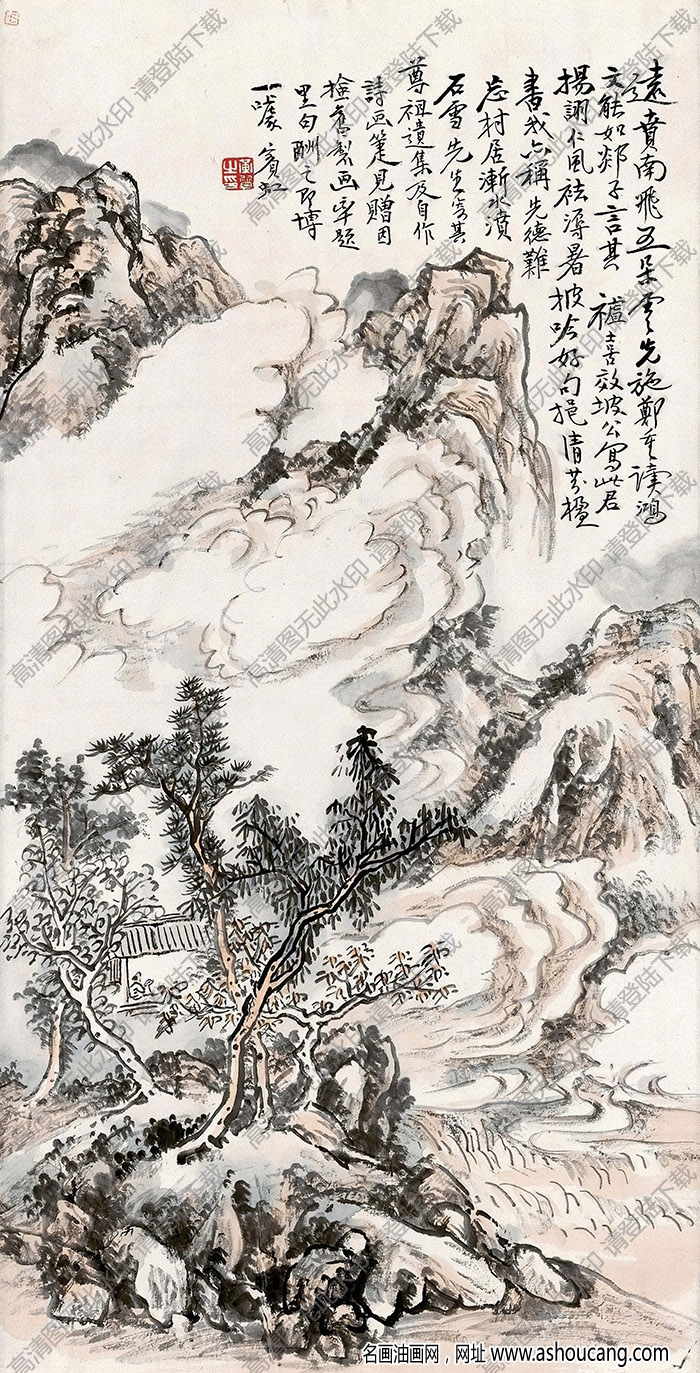 遠賁南飛五朵雲先施鄭重讀鴻
文能如郯子言其 禮喜效坡公寫此君
揚詡仁風祛溽暑披吟好句挹清芬楹
書我亦稱先德難
忘村居漸水濆
石雪先生寄其
尊祖遺集及自作
詩画箑見贈因
撿舊製画率題
里句酬之即博
一噱 賓虹
高清图无此水印 请登陆下载
名画油画网，网址 www.ashoucang.com